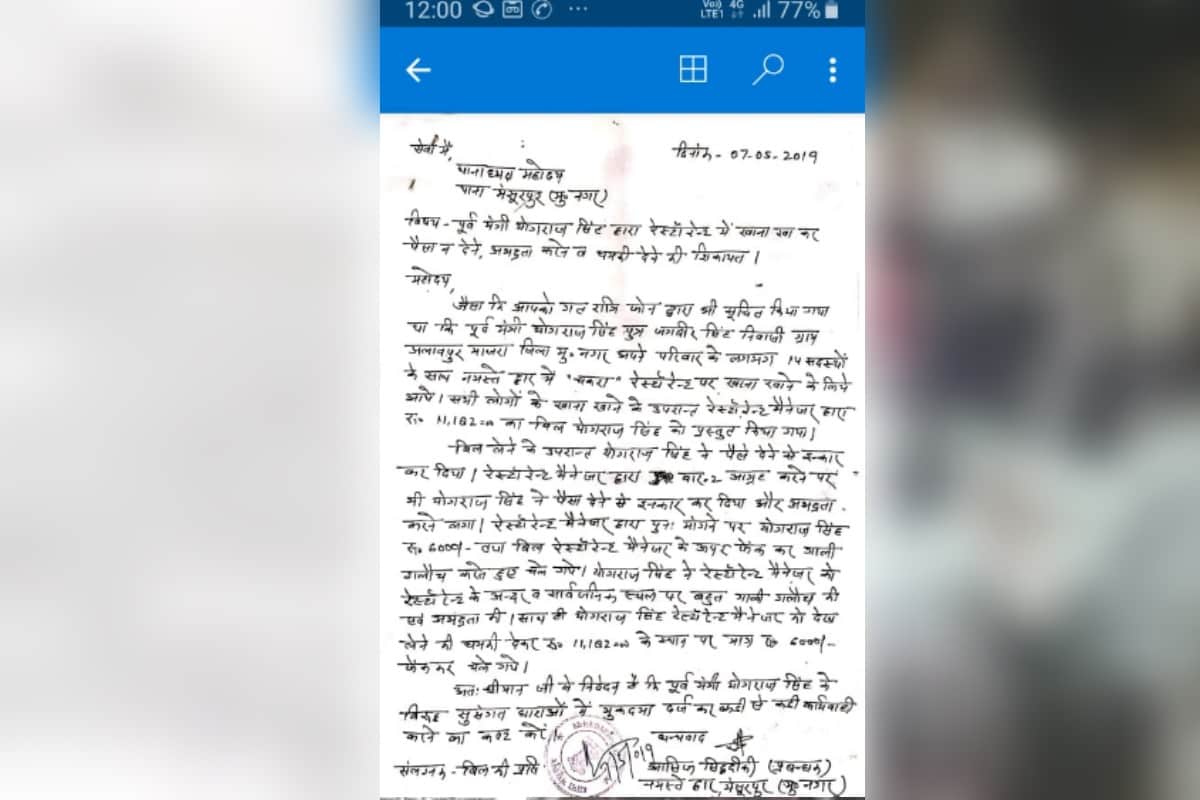 12:00 ... Vo) LTE1 4G 77%
सेवा में,
दिनांक - 07-05-2019
थानाध्यक्ष महोदय
थाना मंसूरपुर (मु० नगर)
विषय - पूर्व मंत्री योगराज सिंह द्वारा रेस्टोरेन्ट में खाना खा कर
पैसा न देने, अभद्रता करने व धमकी देने की शिकायत।
महोदय,
जैसा कि आपको गत रात्रि फोन द्वारा भी सूचित किया गया
था कि पूर्व मंत्री योगराज सिंह पुत्र जगबीर सिंह निवासी ग्राम
अलावपुर माजरा जिला मु० नगर अपने परिवार के लगभग 14 सदस्यों
के साथ नमस्ते द्वार में "चकरा" रेस्टोरेन्ट पर खाना खाने के लिये
आये। सभी लोगों के खाना खाने के उपरान्त रेस्टोरेन्ट मैनेजर द्वारा
रु० 11,182=00 का बिल योगराज सिंह को प्रस्तुत किया गया।
बिल लेने के उपरान्त योगराज सिंह ने पैसे देने से इन्कार
कर दिया। रेस्टोरेन्ट मैनेजर द्वारा बार-2 आग्रह करने पर
भी योगराज सिंह ने पैसा देने से इनकार कर दिया और अभद्रता
करने लगा। रेस्टोरेन्ट मैनेजर द्वारा पुनः मांगने पर योगराज सिंह
रु० 6000/- तथा बिल रेस्टोरेन्ट मैनेजर के ऊपर फेंक कर गाली
गलौच करते हुए चले गये। योगराज सिंह ने रेस्टोरेन्ट मैनेजर को
रेस्टोरेन्ट के अन्दर व सार्वजनिक स्थल पर बहुत गाली गलौच की
एवं अभद्रता की। साथ ही योगराज सिंह रेस्टोरेन्ट मैनेजर को देख
लेने की धमकी देकर रु० 11,182=00 के स्थान पर मात्र रु० 6000/-
फेंककर चले गये।
अतः श्रीमान जी से निवेदन है कि पूर्व मंत्री योगराज सिंह के
विरुद्ध सुसंगत धाराओं में मुकदमा दर्ज कर कड़ी से कड़ी कार्यवाही
करने का कष्ट करें।
धन्यवाद
संलग्नक - बिल की प्रति
आसिफ सिद्दीकी (प्रबन्धक)
नमस्ते द्वार, मंसूरपुर (मु० नगर)